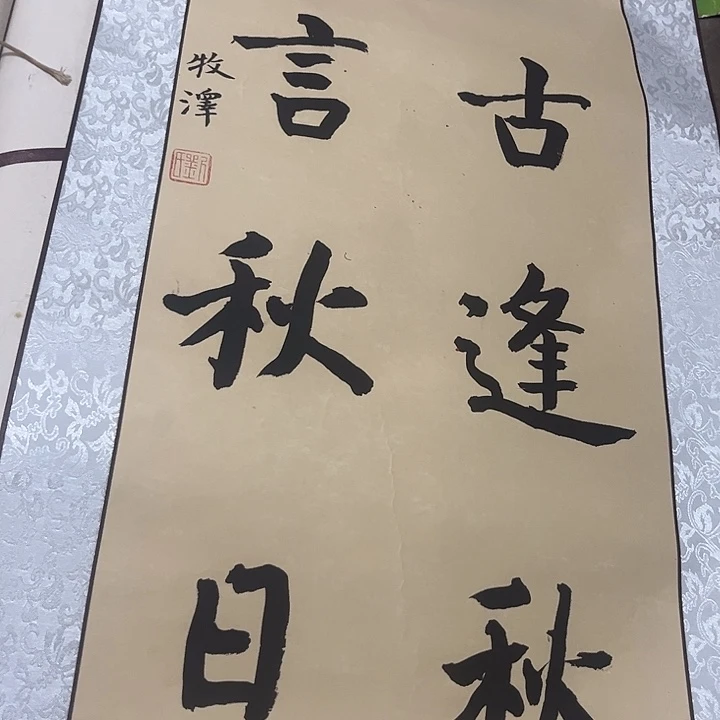 古逢秋
言秋日
牧澤